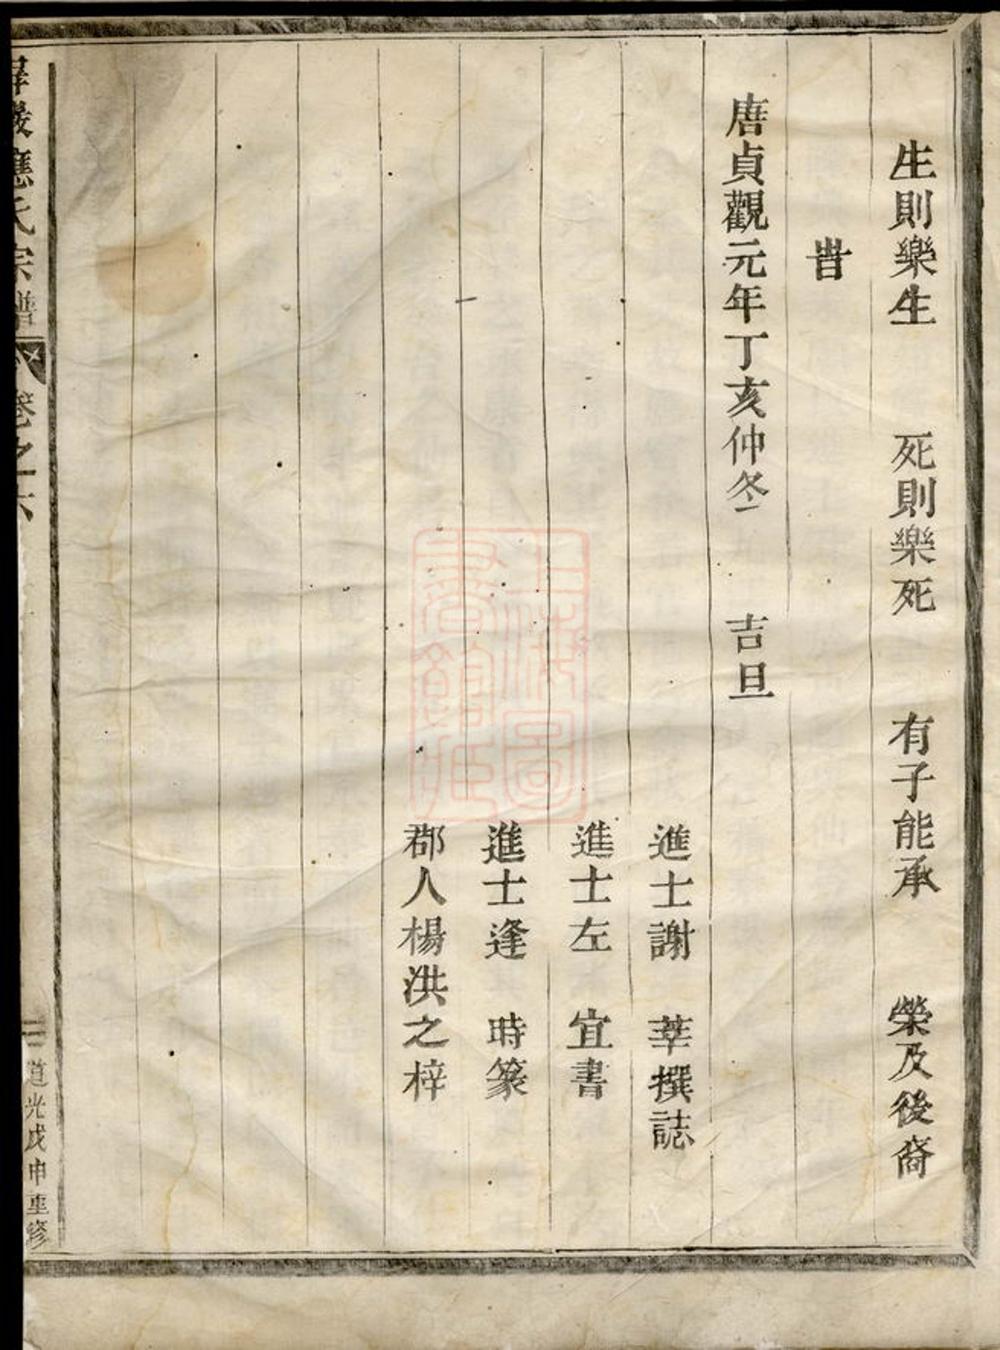 生則樂生 死則樂死 有子能承 榮及後裔
旹
唐貞觀元年丁亥仲冬 吉旦
進士謝 莘撰誌
進士左 宜書
進士逢 時篆
郡人楊洪之梓
屏巖應氏宗譜 卷之六 二 道光戊申重修
上海圖書館藏